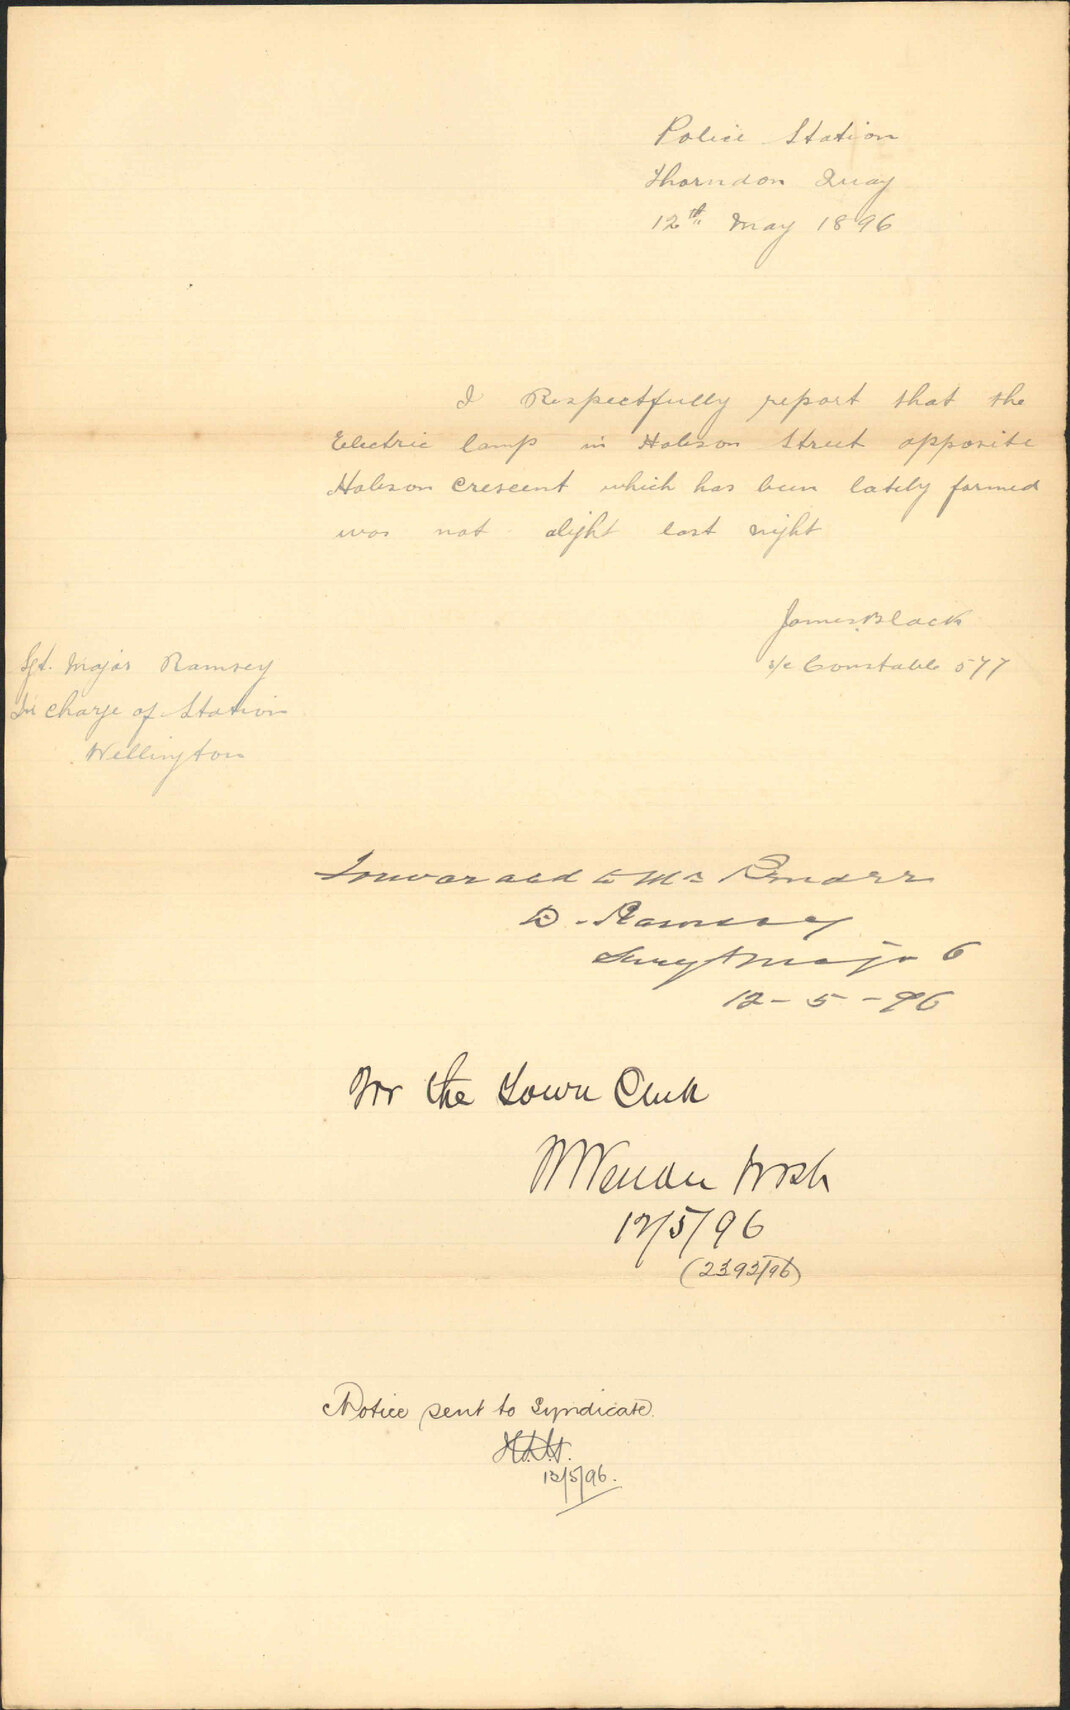 Police Station
Thorndon Quay
12th May 1896
I Respectfully report that the
Electric lamp in Hobson Street opposite
Hobson Crescent which has been lately formed
was not alight last night
James Black
Constable 577
Sgt. Major Ramsey
In charge of Station
Wellington
to Mr
D. Ramsey
Sergt Major
12-5-96
For the Town Clerk
12/5/96
(2392/96)
Notice sent to Syndicate.
13/5/96.